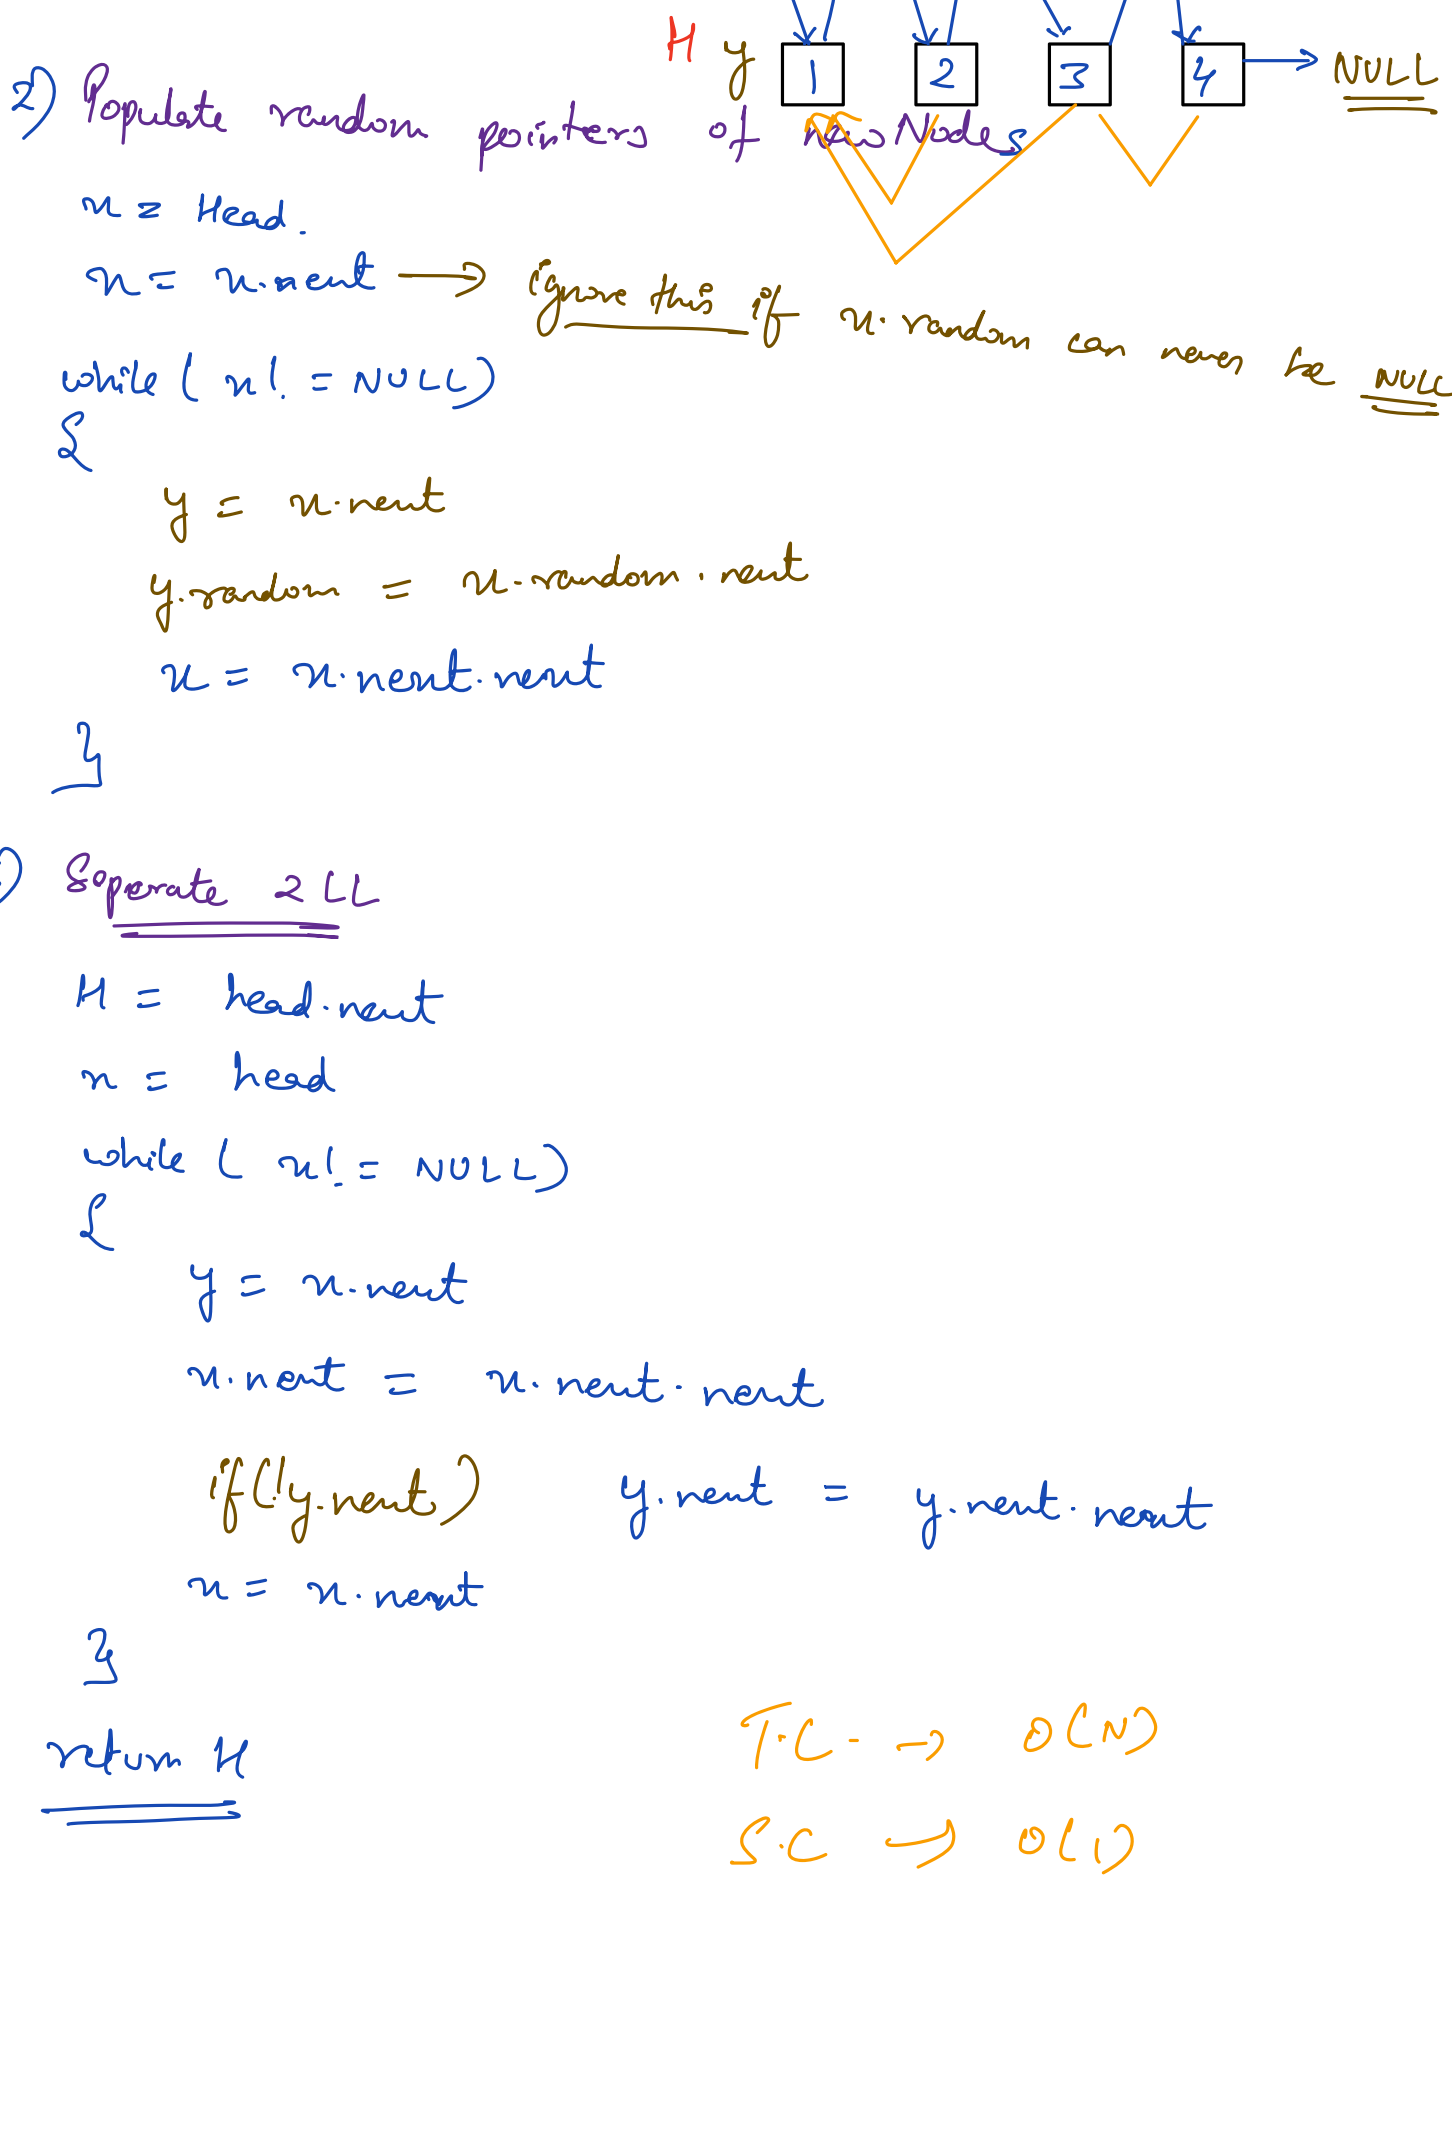 H y 1 2 3 4 NULL
2) Populate random pointers of newNodes
x = Head.
x = x.next → ignore this if x.random can never be NULL
while ( x! = NULL)
{
y = x.next
y.random = x.random.next
x = x.next.next
}
) Seperate 2 LL
H = head.next
x = head
while ( x! = NULL)
{
y = x.next
x.next = x.next.next
if(!y.next) y.next = y.next.next
x = x.next
}
return H
T.C - → O(N)
S.C → O(1)